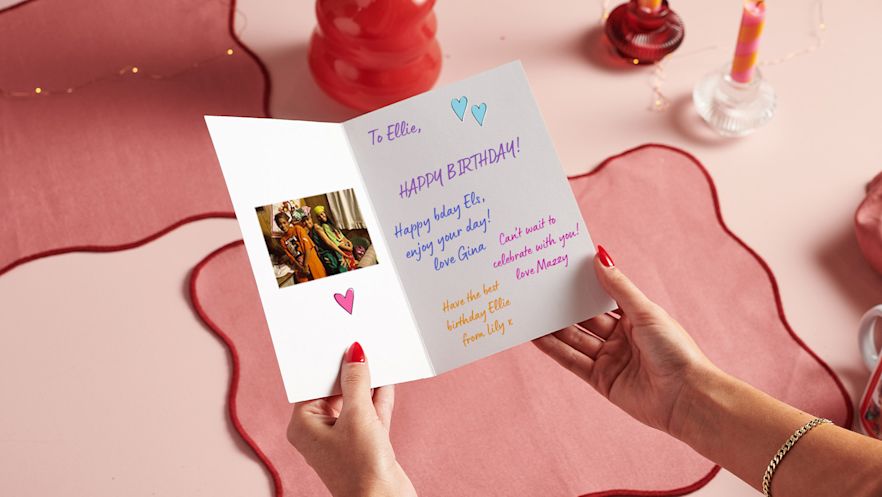 To Ellie,
HAPPY BIRTHDAY!
Happy bday Els,
enjoy your day!
love Gina
Can't wait to
celebrate with you!
love Mazzy
Have the best
birthday Ellie
from Lily x